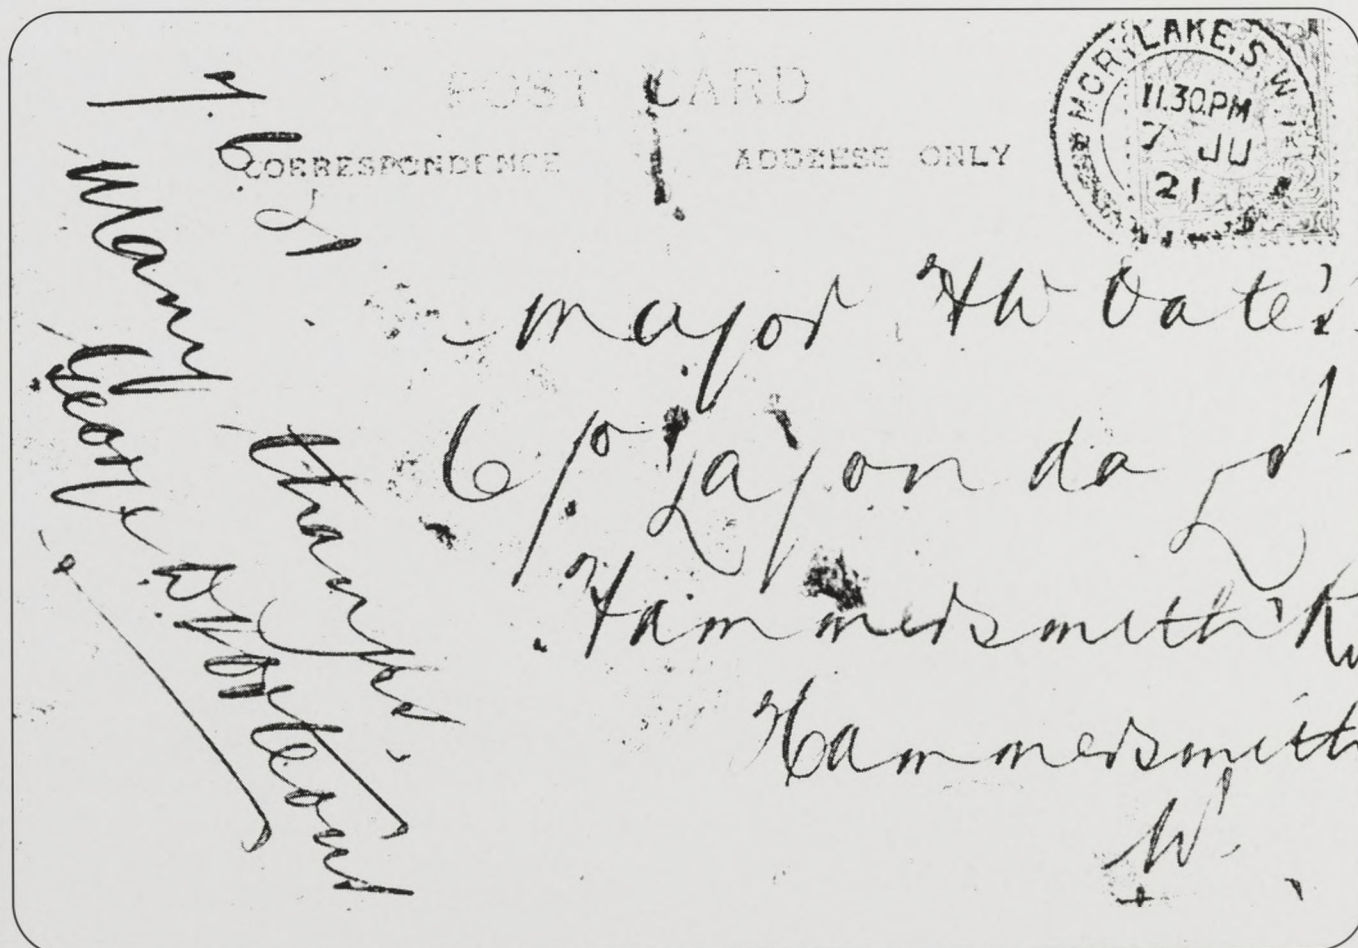 POST CARD
CORRESPONDENCE
ADDRESS ONLY
MORTLAKE. S.W.
11.30 PM
7 JU
21
7.6.21
Many thanks.
George B Porteous
Major HW
6 Lagonda Ld.
Hammersmith
Hammersmith
W.